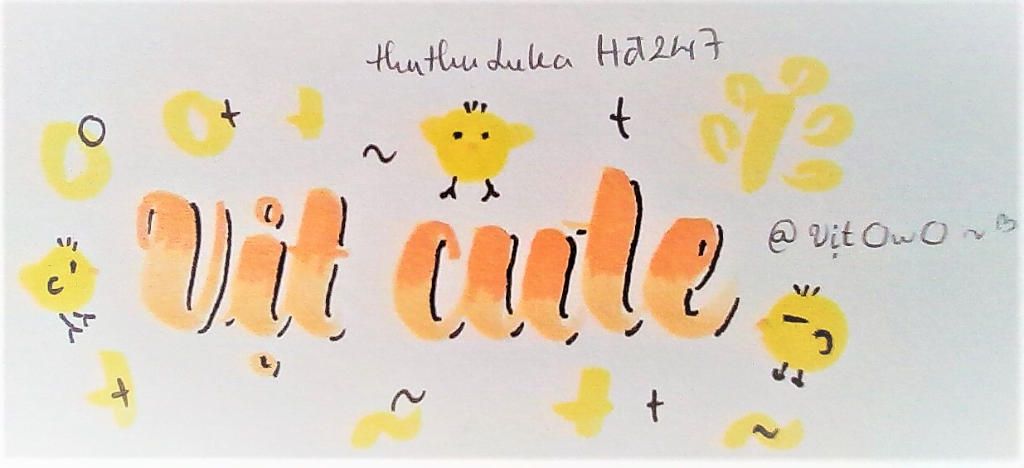 thuthuduka Hđ247
Vịt cute
@ Vịt OwO ~